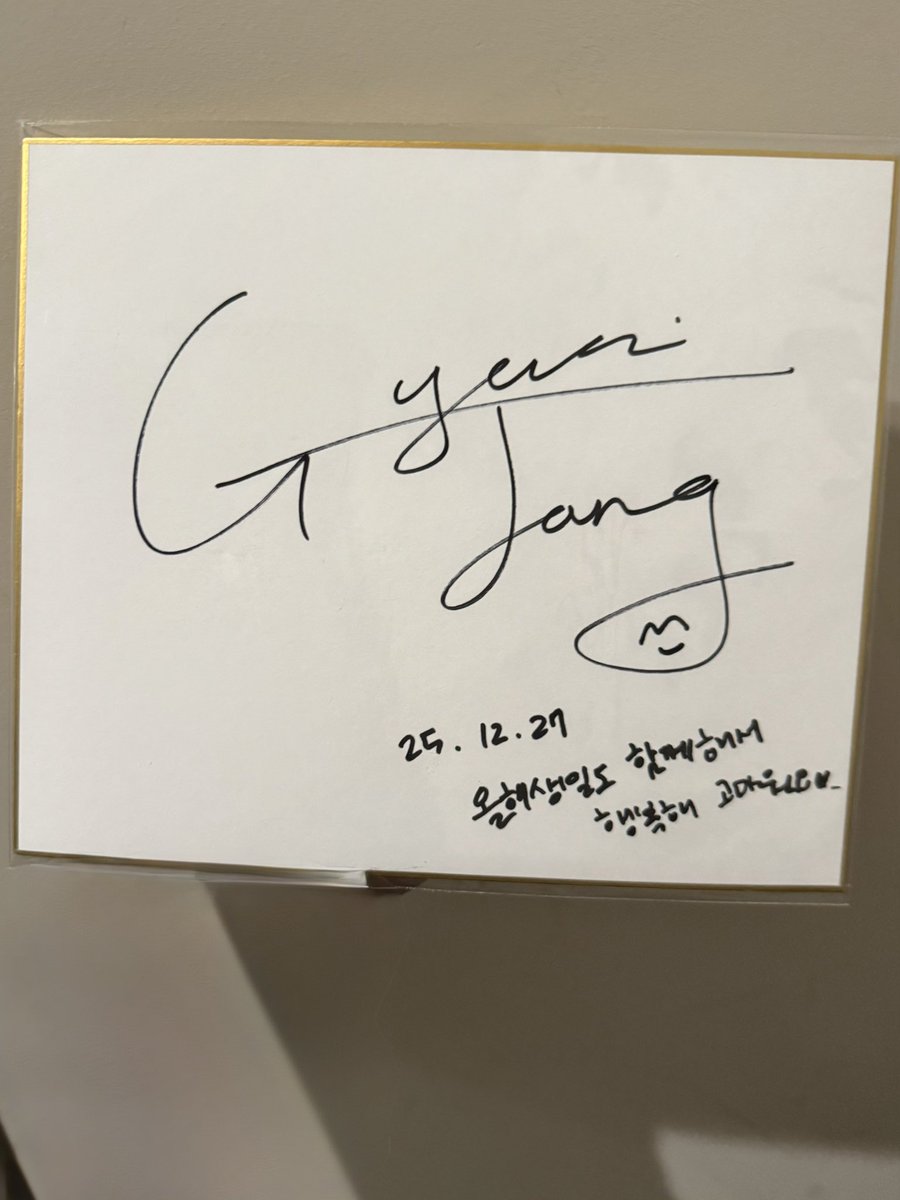 Gyuri
Jang
25.12.27
올해생일도 함께해서
행복해 고마워요♥